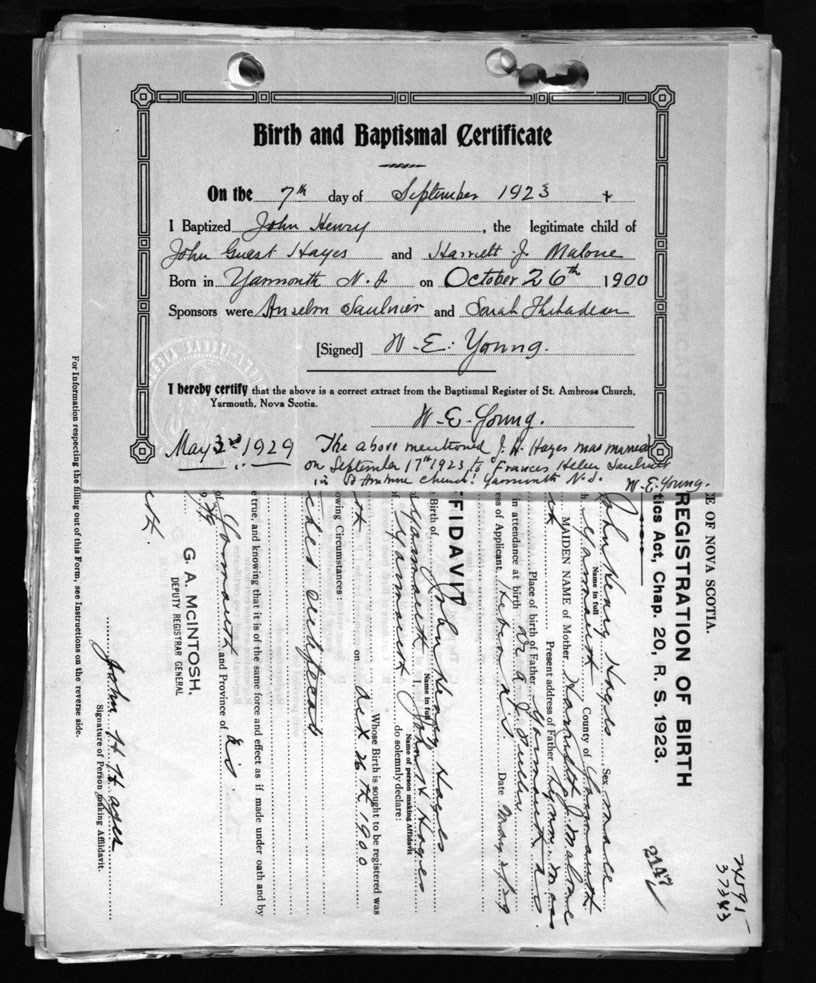 Birth and Baptismal Certificate
On the 7th day of September 1923
I Baptized John Henry, the legitimate child of
John Guest Hayes and Harriett J. Malone
Born in Yarmouth N.S. on October 26th 1900
Sponsors were Anselm Saulnier and Sarah Thibadeau
[Signed] W. E. Young.
I hereby certify that the above is a correct extract from the Baptismal Register of St. Ambrose Church,
Yarmouth, Nova Scotia.
W. E. Young.
May 3rd 1929 The above mentioned J. H. Hayes was married
on September 17th 1923 to Frances Helen Saulnier
in St Ambrose Church: Yarmouth N.S. W. E. Young.
E OF NOVA SCOTIA.
REGISTRATION OF BIRTH
tics Act, Chap. 20, R. S. 1923.
John Henry Hayes Sex male
Name in full
Yarmouth County of Yarmouth
MAIDEN NAME of Mother Harriett J. Malone
Present address of Father Lynn, Mass
Place of birth of Father Yarmouth N.S.
in attendance at birth
ess of Applicant, Hebron N.S. Date May
FIDAVIT
Birth of John Henry Hayes
Name in full
Yarmouth I, John H Hayes
Name of person making Affidavit
Yarmouth do solemnly declare:
Whose Birth is sought to be registered was
on Oct 26th 1900
owing Circumstances:
e true, and knowing that it is of the same force and effect as if made under oath and by
of Yarmouth and Province of N.S.
G. A. McINTOSH,
DEPUTY REGISTRAR GENERAL
John H Hayes
Signature of Person making Affidavit.
For Information respecting the filling out of this Form, see Instructions on the reverse side.
2147
74591
37343